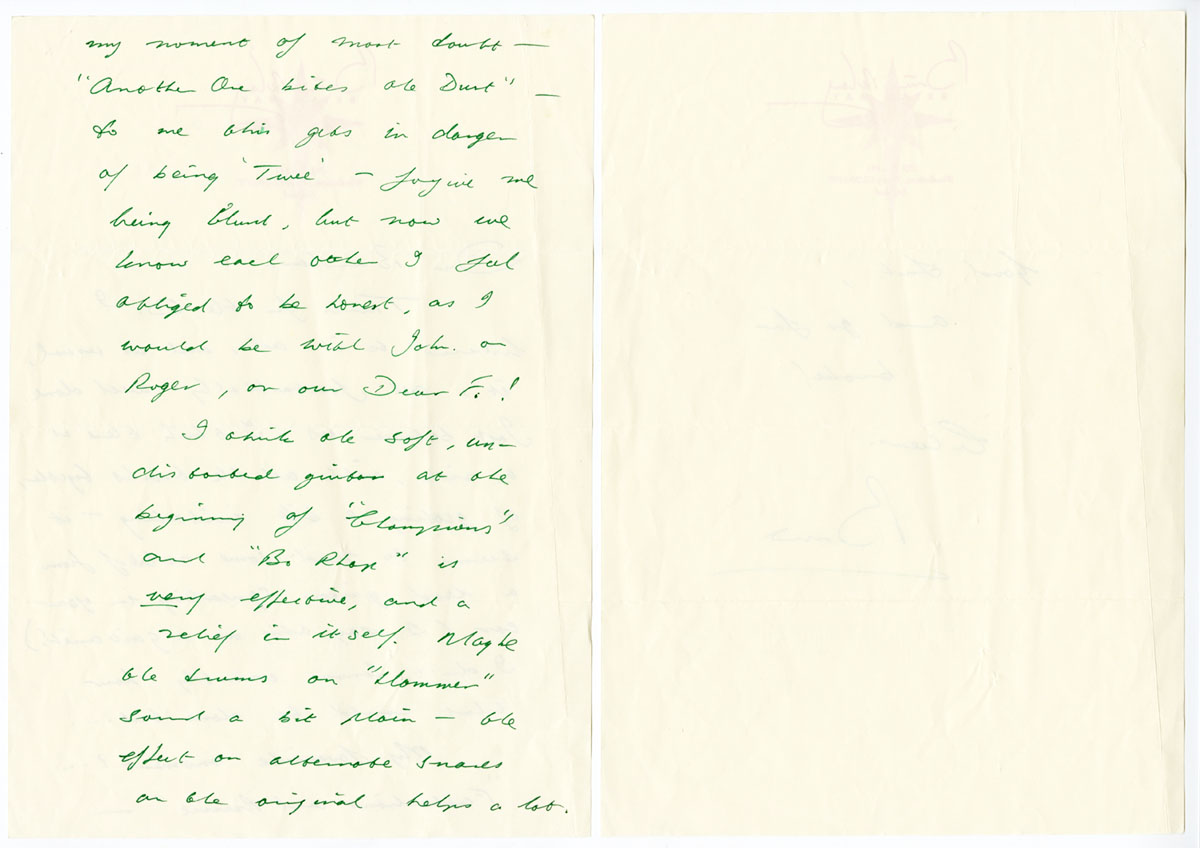 my moment of most doubt —
"Another One bites the Dust" —
to me this gets in danger
of being 'Twee' — forgive me
being blunt, but now we
know each other I feel
obliged to be honest, as I
would be with John or
Roger, or our Dear F.!
I think the soft, un-
disturbed guitar at the
beginning of "Champions"
and "Bo Rhap" is
very effective, and a
relief in itself. Maybe
the drums on "Hammer"
sound a bit plain — the
effect on alternate snares
on the original helps a lot.